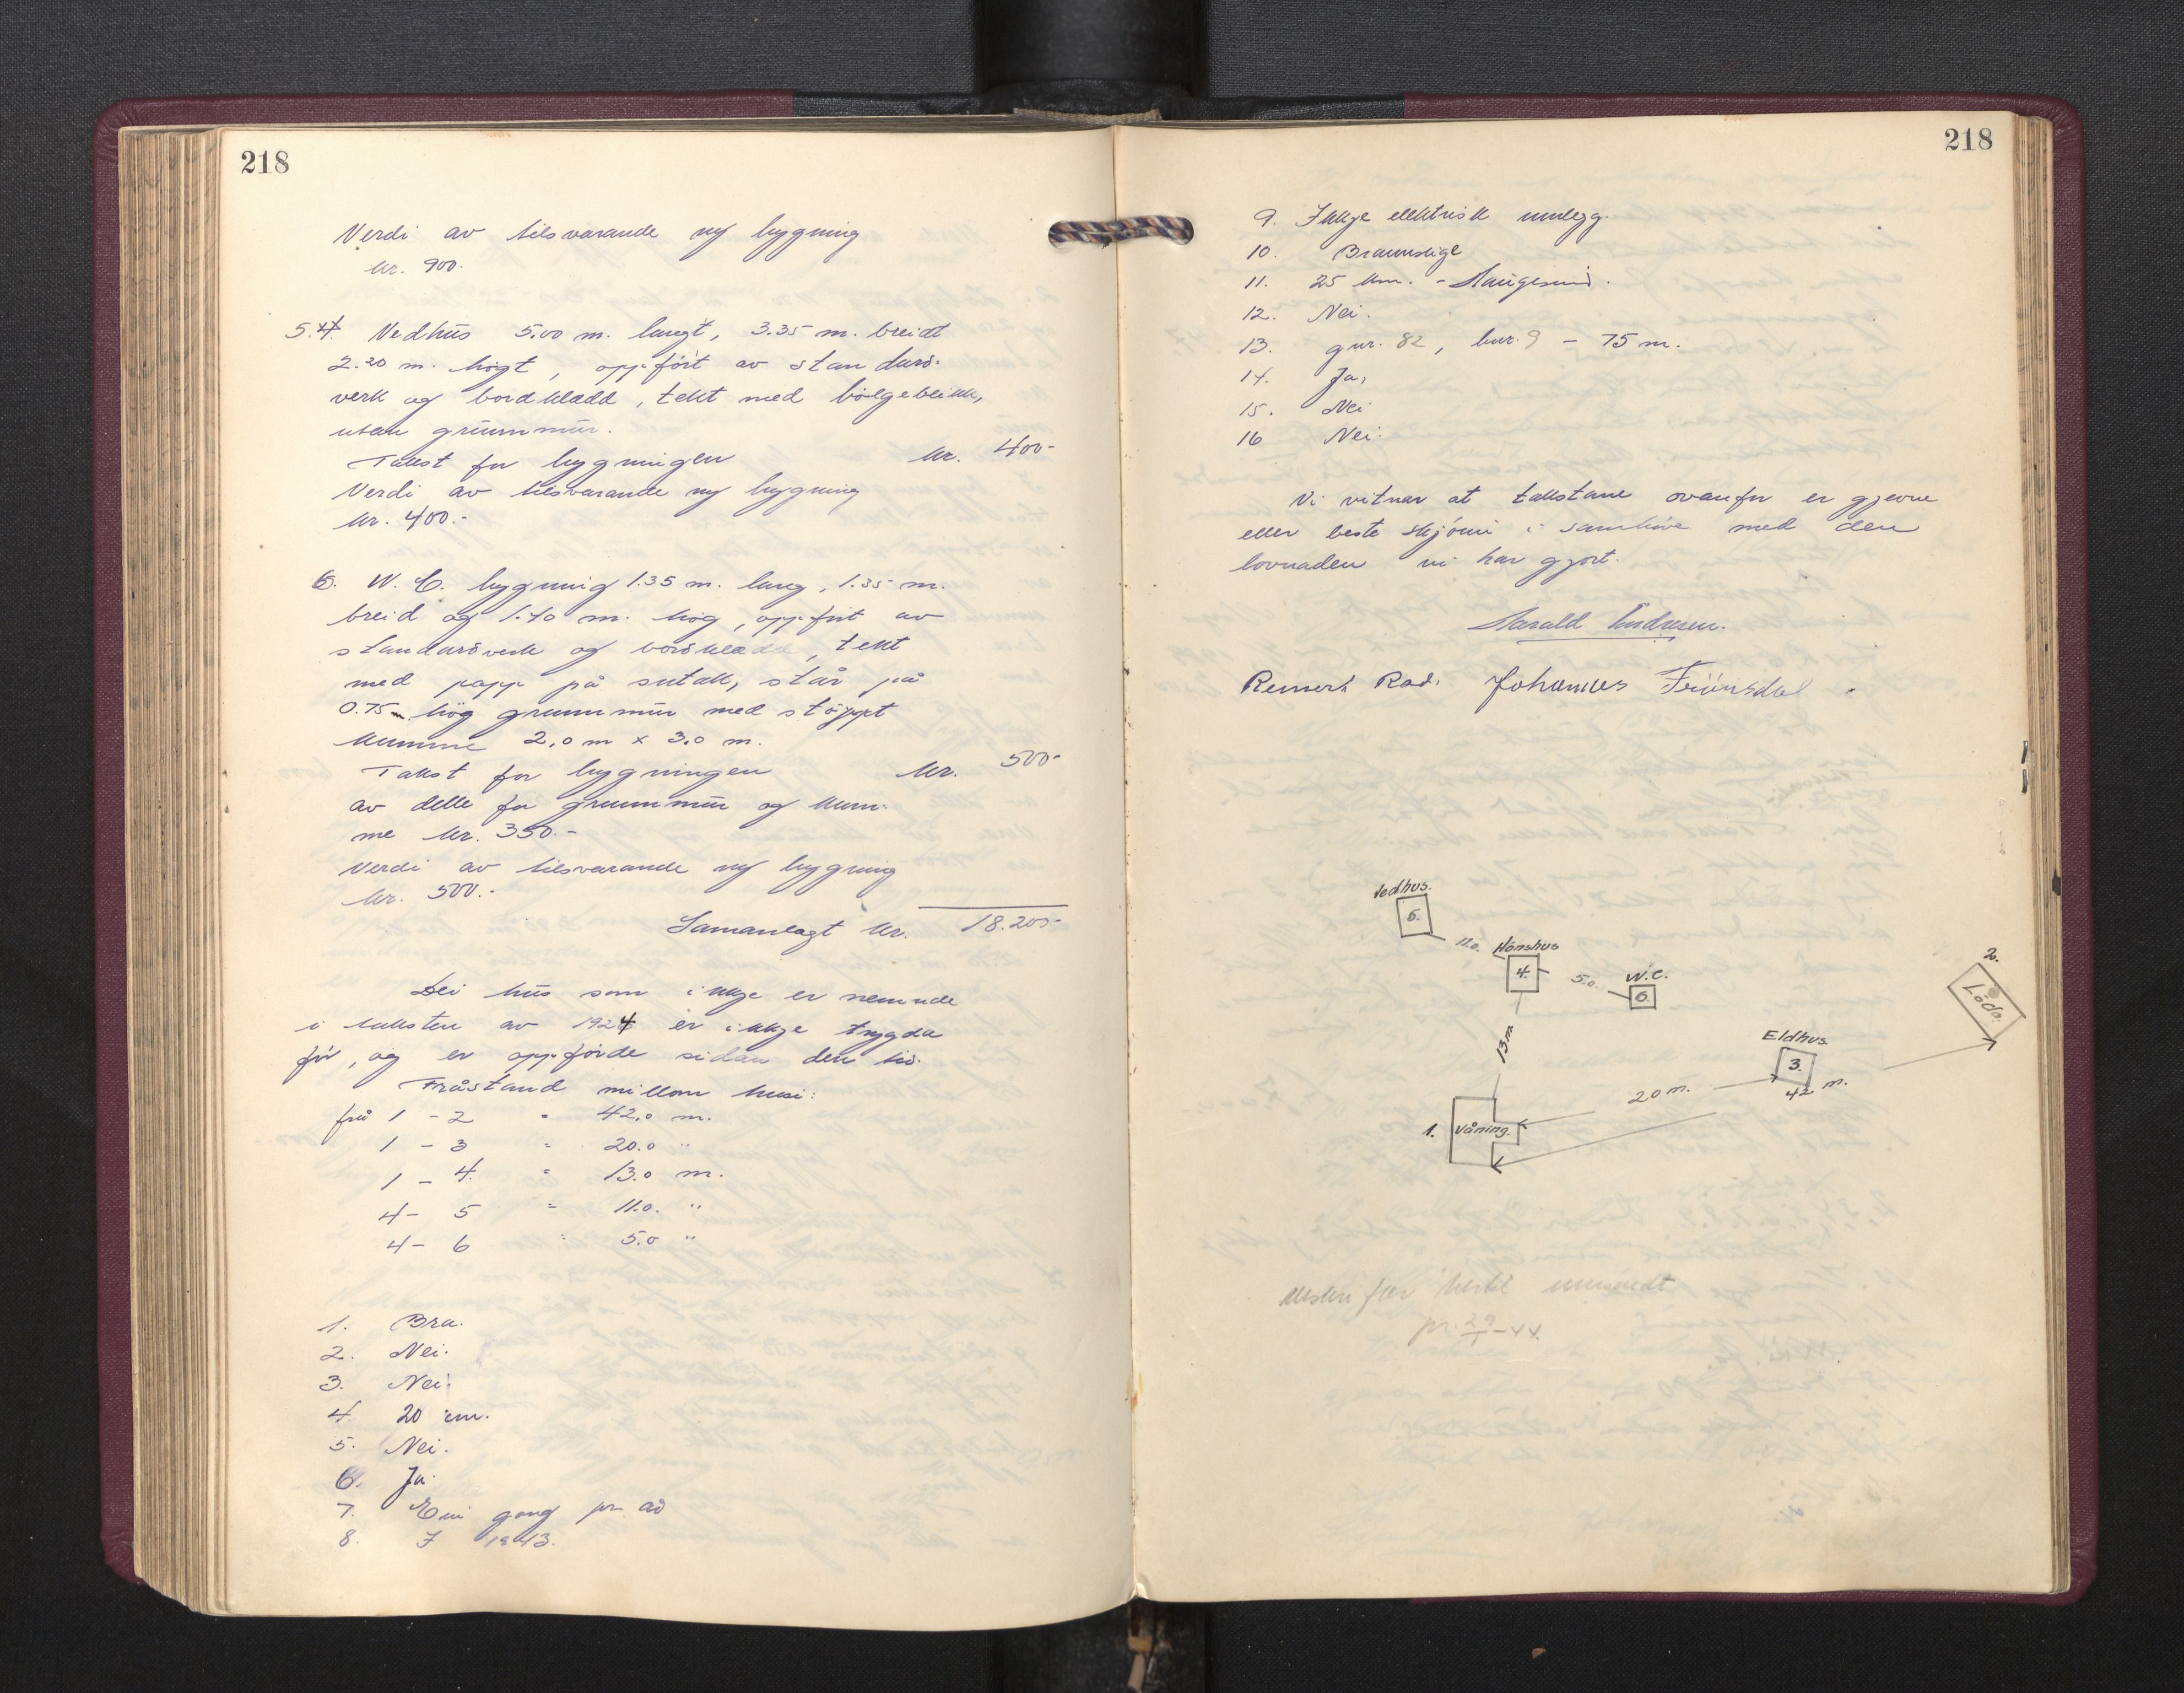 218
Verdi av tilsvarande ny bygning
kr. 900.
5. Vedhus 5.00 m. langt, 3.35 m. breidt
2.20 m. högt, oppfört av standard-
verk og bordkledd, tekt med bölgeblikk,
utan grunnmúr.
Takst for bygningen kr. 400-
Verdi av tilsvarande ny bygning
kr. 400.-
6. W. C. bygning 1.35 m. lang, 1.35 m.
breid og 1.70 m. hög, oppfört av
standardverk og bordkledd, tekt
med papp på sutak, står på
0.75 m hög grunnmúr med stöypt
kumme 2.0 m x 3.0 m.
Takst for bygningen kr. 500-
av dette for grunnmúr og kum-
me kr. 350.-
Verdi av tilsvarande ny bygning
kr. 500.-
Samanlagt kr. 18.200-
Dei hús som ikkje er nemnde
i taksten av 1924 er ikkje trygda
för, og er oppförde sidan den tid.
Fråstand millom husi:
frå 1 - 2 " 42.0 m.
1 - 3 " 20.0 "
1 - 4 " 13.0 m.
4 - 5 " 11.0. "
4 - 6 " 5.0 "
1. Bra.
2. Nei.
3. Nei.
4. 20 cm.
5. Nei.
6. Ja.
7. Ein gong pr. år
8. I 1943.
218
9. Ikkje elektrisk innlegg.
10. Brannstige
11. 25 km. - Haugesund.
12. Nei.
13. gnr. 82, bnr. 9 - 75 m.
14. Ja,
15. Nei
16 Nei.
Vi vitnar at takstane ovanfor er gjevne
etter beste skjöni i samhöve med den
lovnaden vi har gjort.
Harald Endresen.
Johannes
Vedhus.
5.
11.0.
Hönshus
4.
5.0.
W.C.
6.
2.
Löda.
13 m
Eldhus.
3.
20 m.
42 m.
1. Våning.